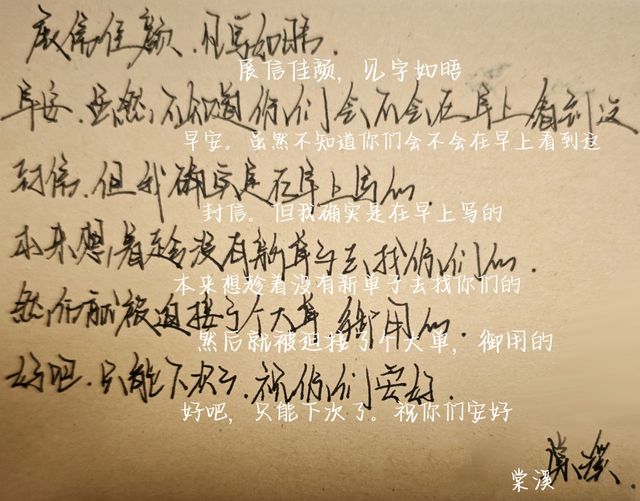 展信佳颜.见字如晤.
展信佳颜，见字如晤
早安.虽然,不知道你们会不会在早上看到这
早安。虽然不知道你们会不会在早上看到这
封信.但我确实是在早上写的.
封信。但我确实是在早上写的
本来想,着趁没有新单子去找你们的.
本来想趁着没有新单子去找你们的
然后就被迫接了个大单,御用的.
然后就被迫接了个大单，御用的
好吧.只能下次了.祝你们安好.
好吧，只能下次了。祝你们安好
棠溪.
棠溪